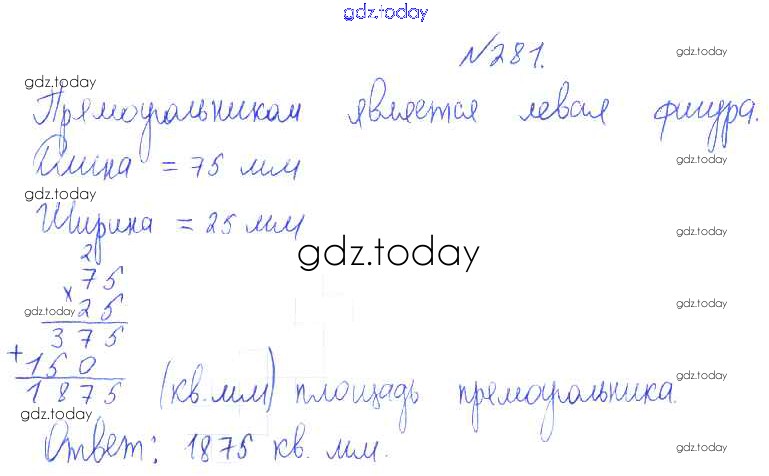 gdz.today
№281.
gdz.today
gdz.today
Прямоугольником является левая фигура.
Длина = 75 мм
gdz.today
gdz.today
Ширина = 25 мм
gdz.today
gdz.today
2
75
× 25
gdz.today
gdz.today
375
+ 150
1875 (кв. мм) площадь прямоугольника.
gdz.today
gdz.today
Ответ: 1875 кв. мм.
gdz.today